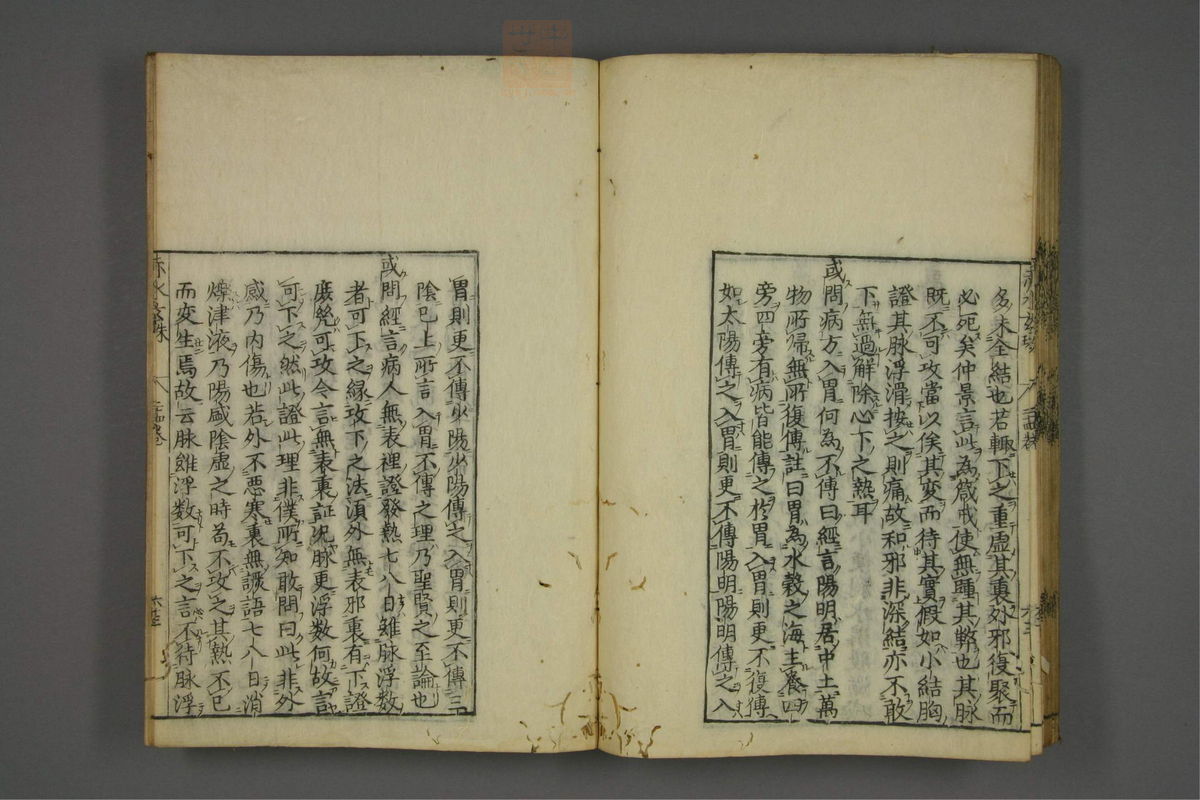 多未全結也若輙下之重虛其裏外邪復聚而
必死矣仲景言此為箴戒使無踵其弊也其脉
既不可攻當以俟其変而待其實假如小結胸
證其脉浮滑按之則痛故和邪非深結亦不敢
下無過解除心下之熱耳
或問病方入胃何為不傳曰經言陽明居中土萬
物所帰無所復傳註曰胃為水穀之海主養四
旁四旁有病皆能傳之於胃入胃則更不復傳
如太陽傳之入胃則更不傳陽明陽明傳之入
胃則更不傳少陽少陽傳之入胃則更不傳三
陰已上所言入胃不傳之理乃聖賢之至論也
或問經言病人無表裡證發熱七八日雖脉浮数
者可下之緣攻下之法須外無表邪裏有下證
庶㡬可攻今言無表裏証况脉更浮数何故言
可下之然此證此理非僕所知敢問曰此非外
感乃内傷也若外不惡寒裏無譫語七八日消
爍津液乃陽盛陰虛之時苟不攻之其熱不已
而変生焉故云脉雖浮数可下之言不待脉浮
赤水玄珠